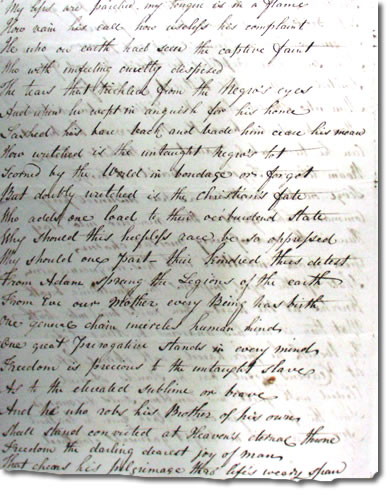 My lips are parched my tongue is in a flame
How vain his call how useless his complaint
He who on earth had seen the captive faint
Who with unfeeling cruelty despised
The tears that trickled from the Negro's eyes
And when he wept in anguish for his home
Lashed his bare back and bade him cease his moan
How wretched is the untaught Negro's lot
Scorned by the World in bondage or forgot
But doubly wretched is the Christian's fate
Who adds one load to their oerburdend state
Why should this hapless race be so oppressed
Why should one part their kindred thus detest
From Adam sprang the Legions of the earth
From Eve our Mother every Being has birth
One general chain human kind
One great Prerogative stands in every mind
Freedom is precious to the untaught slave
As to the elevated sublime or brave
And he who robs his Brother of his own
Shall stand convicted at Heaven's eternal throne
Freedom the darling dearest joy of man
That cheers his pilgrimage thro life's weary span